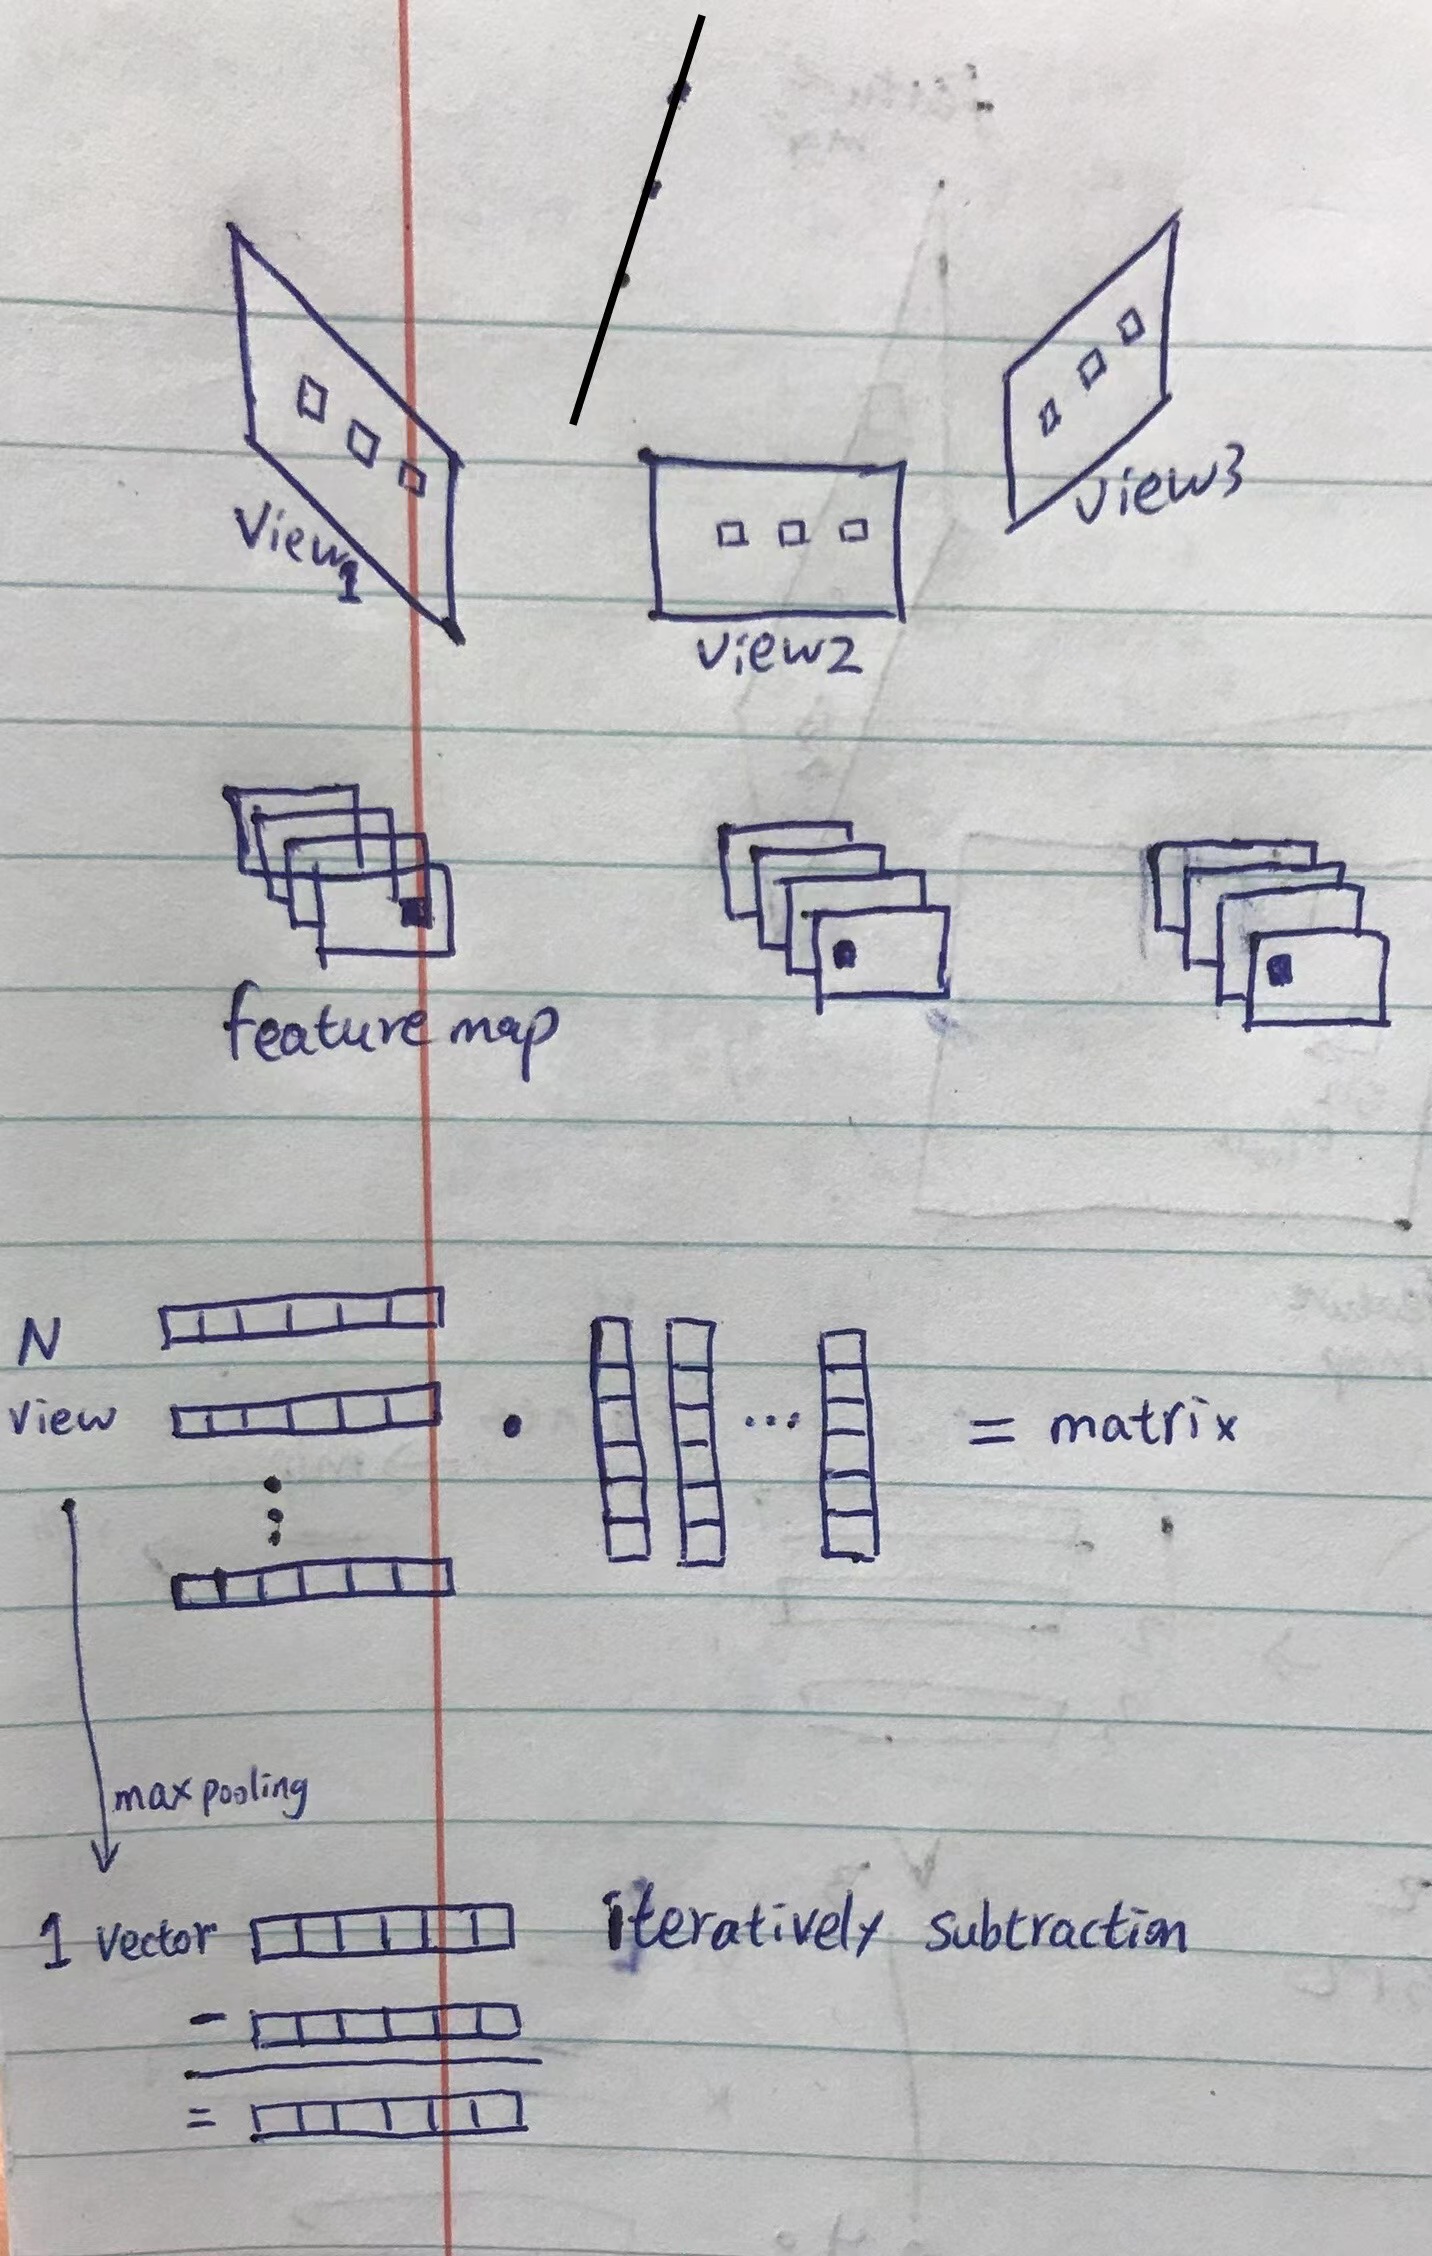 View1
view2
view3
feature map
N
view
• ... = matrix
maxpooling
1 vector
iteratively subtraction
-
=